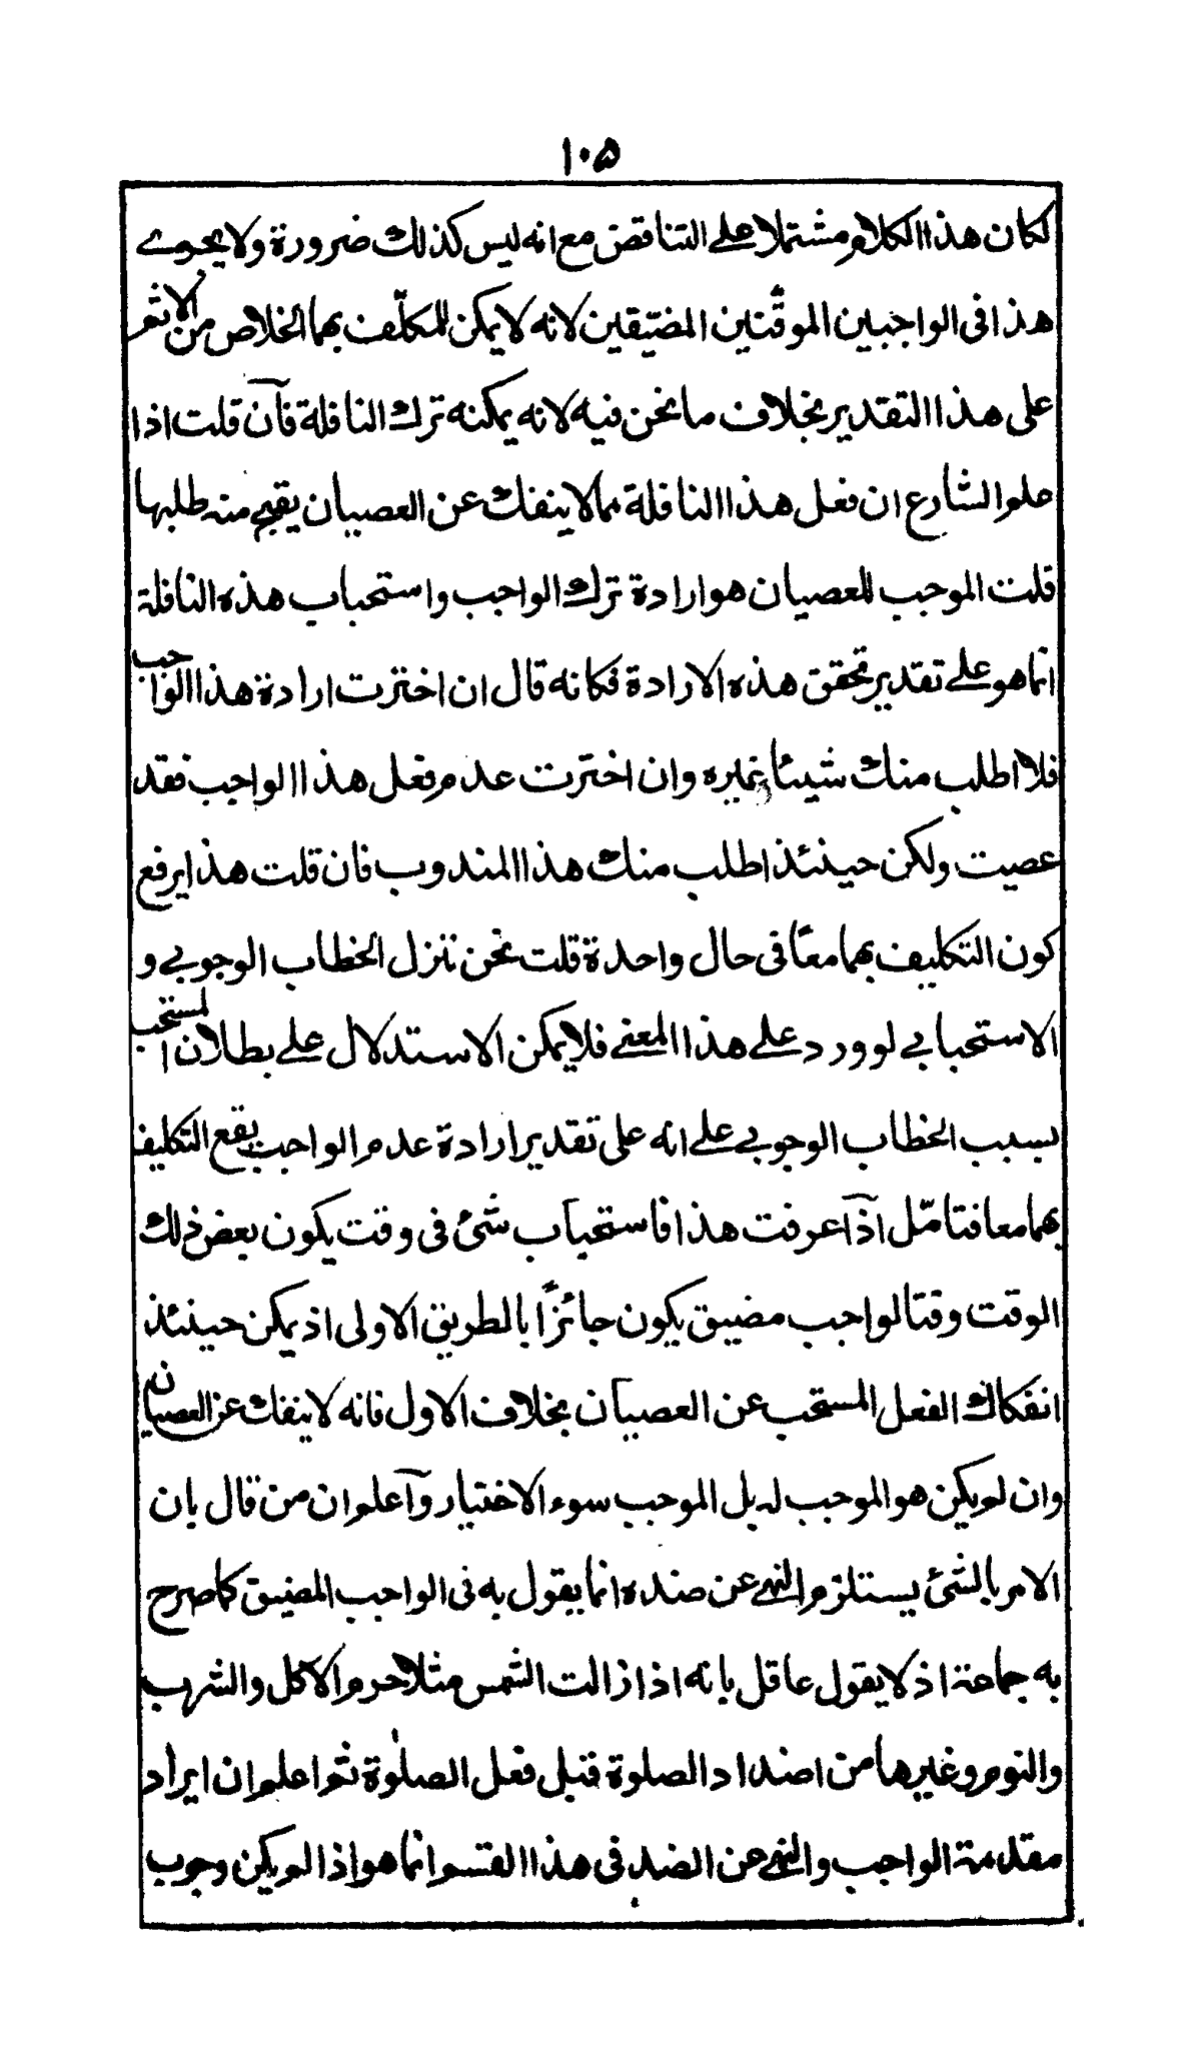 ١٠٥
لكان هذا الكلام مشتملا على التناقض مع انه ليس كذلك ضرورة ولا يجرى
هذا فى الواجبين الموقّتين المضيّقين لانه لا يمكن للمكلّف بهما الخلاص من الاثم
على هذا التقدير بخلاف ما نحن فيه لانه يمكنه ترك النافلة فان قلت اذا
علم الشارع ان فعل هذا النافلة مما لا ينفك عن العصيان يقبح منه طلبها
قلت الموجب للعصيان هو ارادة ترك الواجب واستحباب هذه النافلة
انما هو على تقدير تحقق هذه الارادة فكانه قال ان اخترت ارادة هذا الواجب
فلا اطلب منك شيئا غيره وان اخترت عدم فعل هذا الواجب فقد
عصيت ولكن حينئذ اطلب منك هذا المندوب فان قلت هذا يرفع
كون التكليف بهما معًا فى حال واحدة قلت نحن ننزل الخطاب الوجوبى و
الاستحبابى لو ورد على هذا المعنى فلا يمكن الاستدلال على بطلان المستحب
بسبب الخطاب الوجوبى على انه على تقدير ارادة عدم الواجب يقع التكليف
بهما معا فتامّل اذا عرفت هذا فاستحباب شئ فى وقت يكون بعض ذلك
الوقت وقتا لواجب مضيق يكون جائزًا بالطريق الاولى اذ يمكن حينئذ
انفكاك الفعل المستحب عن العصيان بخلاف الاول فانه لا ينفك عن العصيان
وان لم يكن هو الموجب له بل الموجب سوء الاختيار واعلم ان من قال بان
الامر بالشئ يستلزم النهى عن ضده انما يقول به فى الواجب المضيق كما صرح
به جماعة اذ لا يقول عاقل بانه اذا زالت الشمس مثلا حرم الاكل والشرب
والنوم وغيرها من اضداد الصلوة قبل فعل الصلوٰة ثم اعلم ان ايراد
مقدمة الواجب والنهى عن الضد فى هذا القسم انما هو اذا لم يكن وجوب